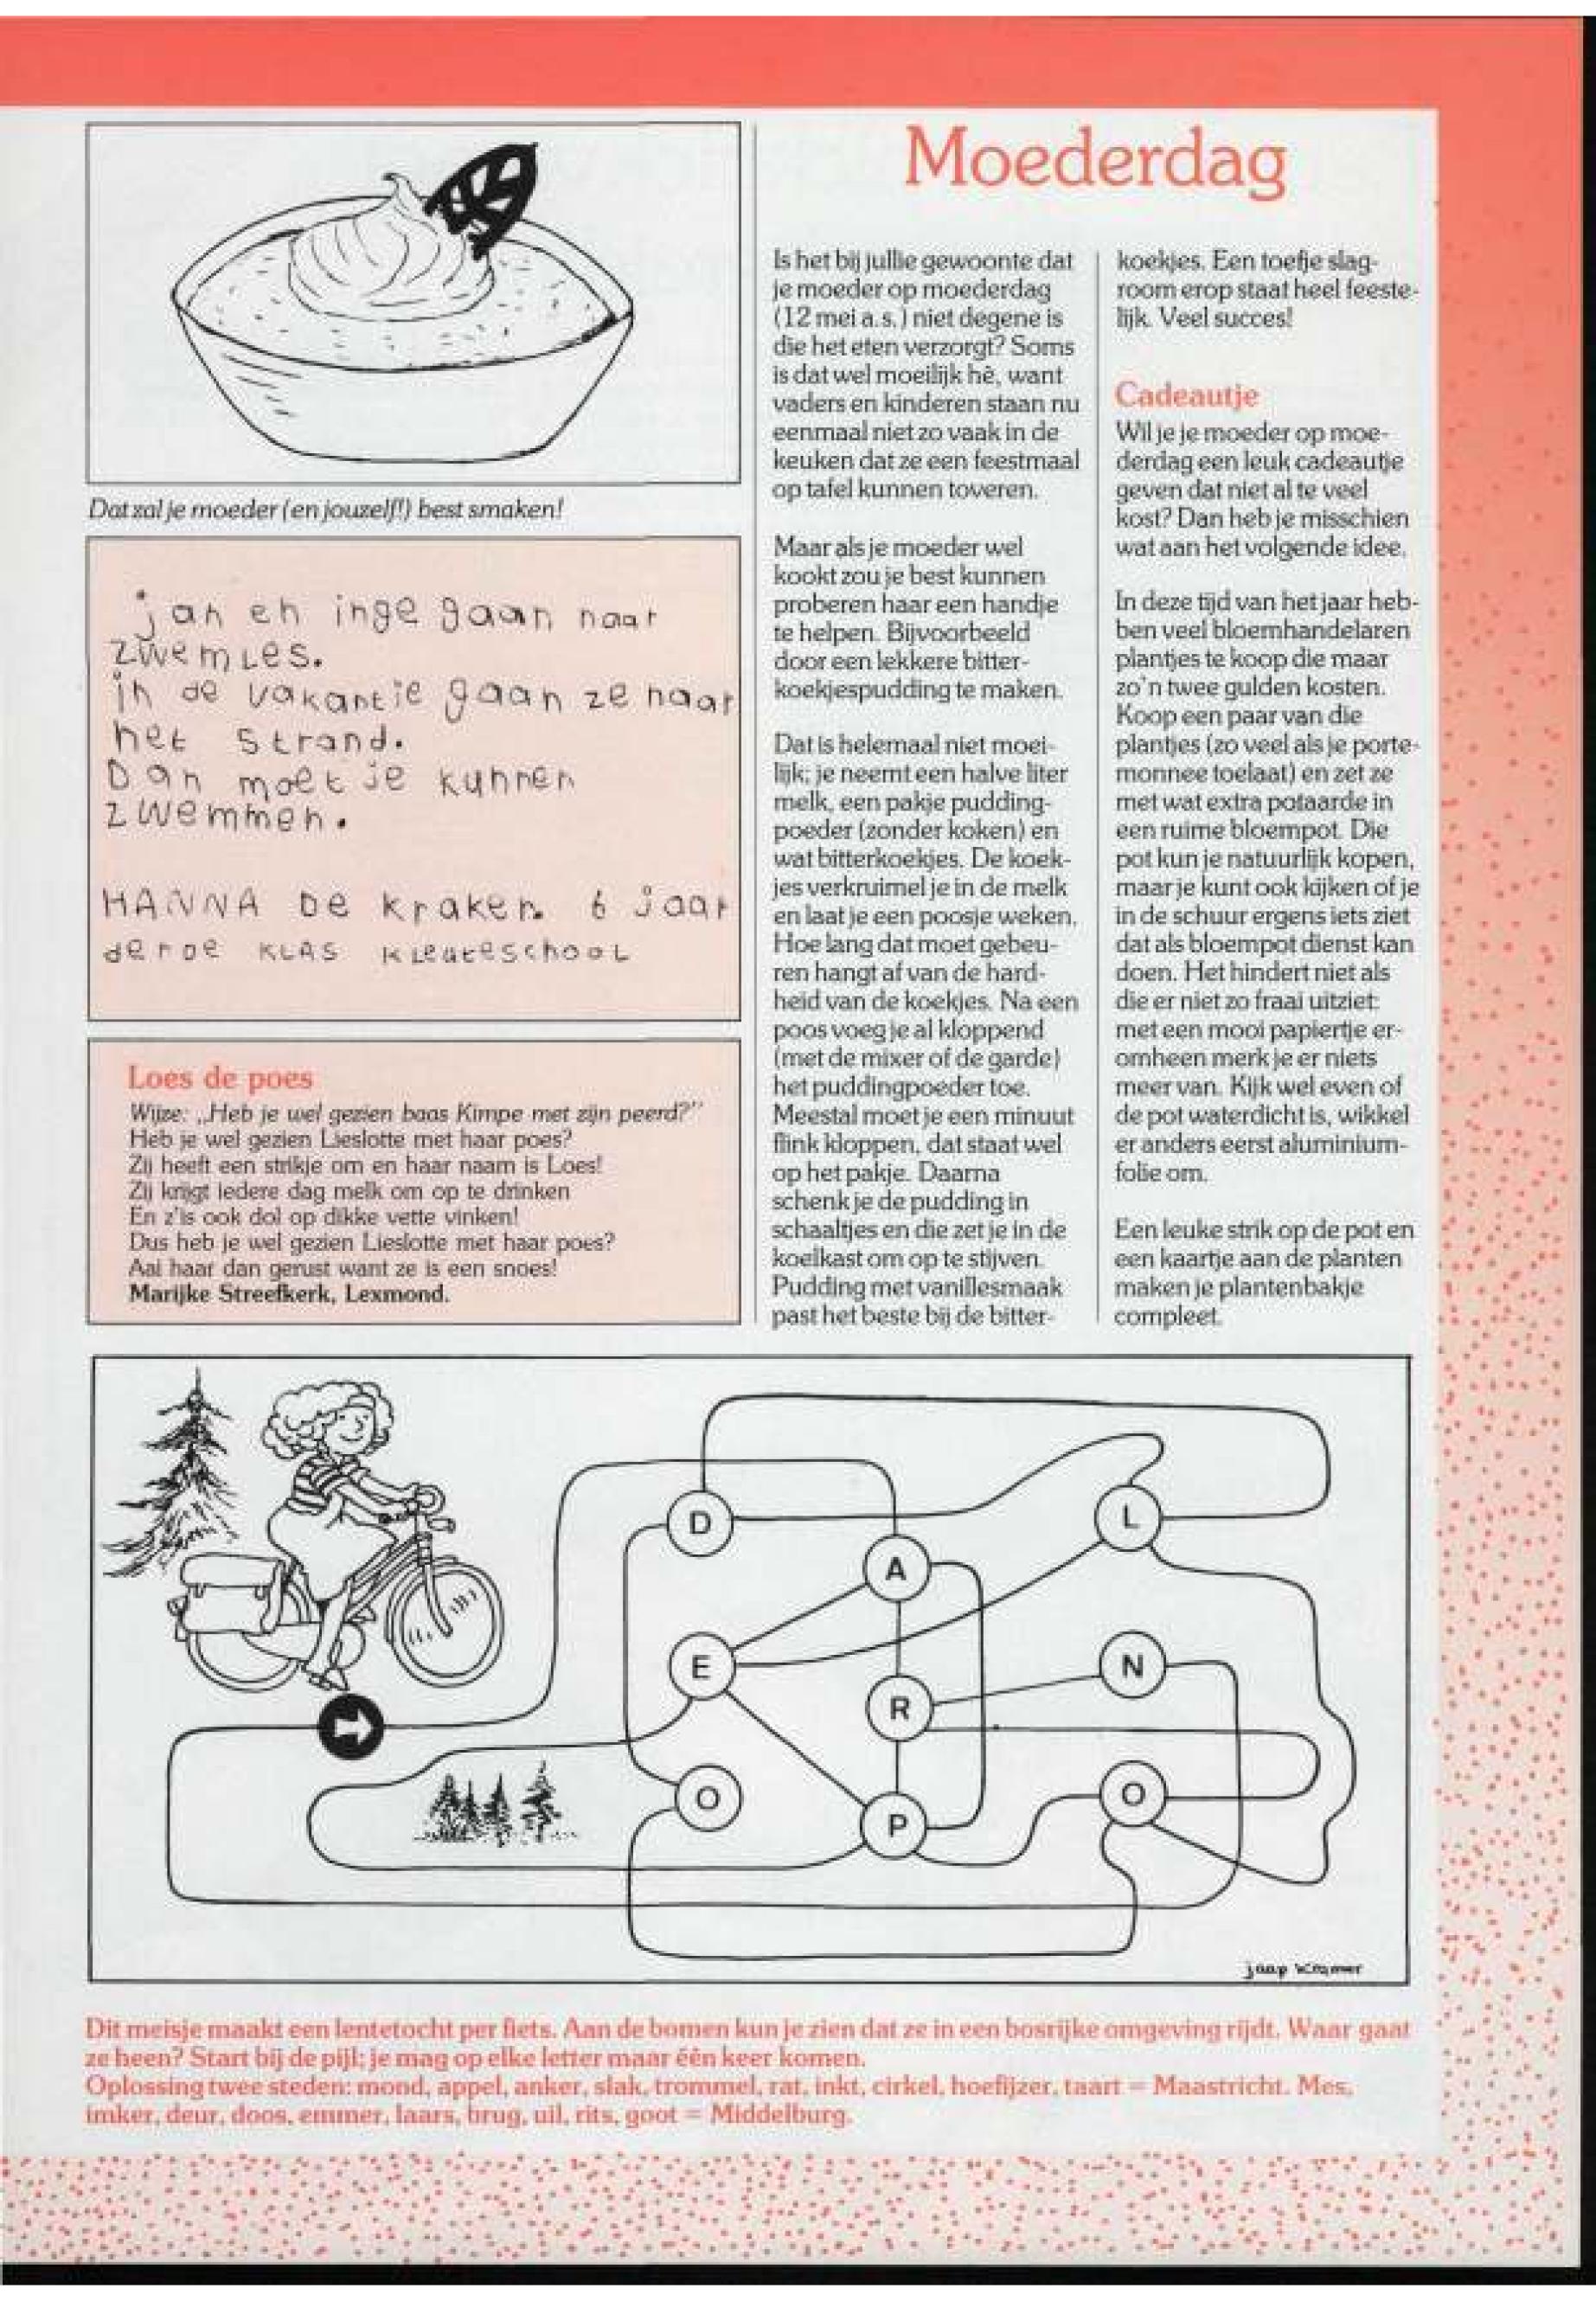 Dat zal je moeder (en jouzelf!) best smaken!
jan en inge gaan naar
zwemles.
in de vakantie gaan ze naar
het strand.
Dan moet je kunnen
zwemmen.
HANNA De Kraker. 6 jaar
deroe KLAS KLeuteschool
Loes de poes
Wijze: „Heb je wel gezien baas Kimpe met zijn peerd?”
Heb je wel gezien Lieslotte met haar poes?
Zij heeft een strikje om en haar naam is Loes!
Zij krijgt iedere dag melk om op te drinken
En z'is ook dol op dikke vette vinken!
Dus heb je wel gezien Lieslotte met haar poes?
Aai haar dan gerust want ze is een snoes!
Marijke Streefkerk, Lexmond.
Moederdag
Is het bij jullie gewoonte dat
je moeder op moederdag
(12 mei a.s.) niet degene is
die het eten verzorgt? Soms
is dat wel moeilijk hè, want
vaders en kinderen staan nu
eenmaal niet zo vaak in de
keuken dat ze een feestmaal
op tafel kunnen toveren.
Maar als je moeder wel
kookt zou je best kunnen
proberen haar een handje
te helpen. Bijvoorbeeld
door een lekkere bitter-
koekjespudding te maken.
Dat is helemaal niet moei-
lijk; je neemt een halve liter
melk, een pakje pudding-
poeder (zonder koken) en
wat bitterkoekjes. De koek-
jes verkruimel je in de melk
en laat je een poosje weken.
Hoe lang dat moet gebeu-
ren hangt af van de hard-
heid van de koekjes. Na een
poos voeg je al kloppend
(met de mixer of de garde)
het puddingpoeder toe.
Meestal moet je een minuut
flink kloppen, dat staat wel
op het pakje. Daarna
schenk je de pudding in
schaaltjes en die zet je in de
koelkast om op te stijven.
Pudding met vanillesmaak
past het beste bij de bitter-
koekjes. Een toefje slag-
room erop staat heel feeste-
lijk. Veel succes!
Cadeautje
Wil je je moeder op moe-
derdag een leuk cadeautje
geven dat niet al te veel
kost? Dan heb je misschien
wat aan het volgende idee.
In deze tijd van het jaar heb-
ben veel bloemhandelaren
plantjes te koop die maar
zo'n twee gulden kosten.
Koop een paar van die
plantjes (zo veel als je porte-
monnee toelaat) en zet ze
met wat extra potaarde in
een ruime bloempot. Die
pot kun je natuurlijk kopen,
maar je kunt ook kijken of je
in de schuur ergens iets ziet
dat als bloempot dienst kan
doen. Het hindert niet als
die er niet zo fraai uitziet:
met een mooi papiertje er-
omheen merk je er niets
meer van. Kijk wel even of
de pot waterdicht is, wikkel
er anders eerst aluminium-
folie om.
Een leuke strik op de pot en
een kaartje aan de planten
maken je plantenbakje
compleet.
D
L
A
E
N
R
O
O
P
jaap Kramer
Dit meisje maakt een lentetocht per fiets. Aan de bomen kun je zien dat ze in een bosrijke omgeving rijdt. Waar gaat
ze heen? Start bij de pijl; je mag op elke letter maar één keer komen.
Oplossing twee steden: mond, appel, anker, slak, trommel, rat, inkt, cirkel, hoefijzer, taart = Maastricht. Mes,
imker, deur, doos, emmer, laars, brug, uil, rits, goot = Middelburg.